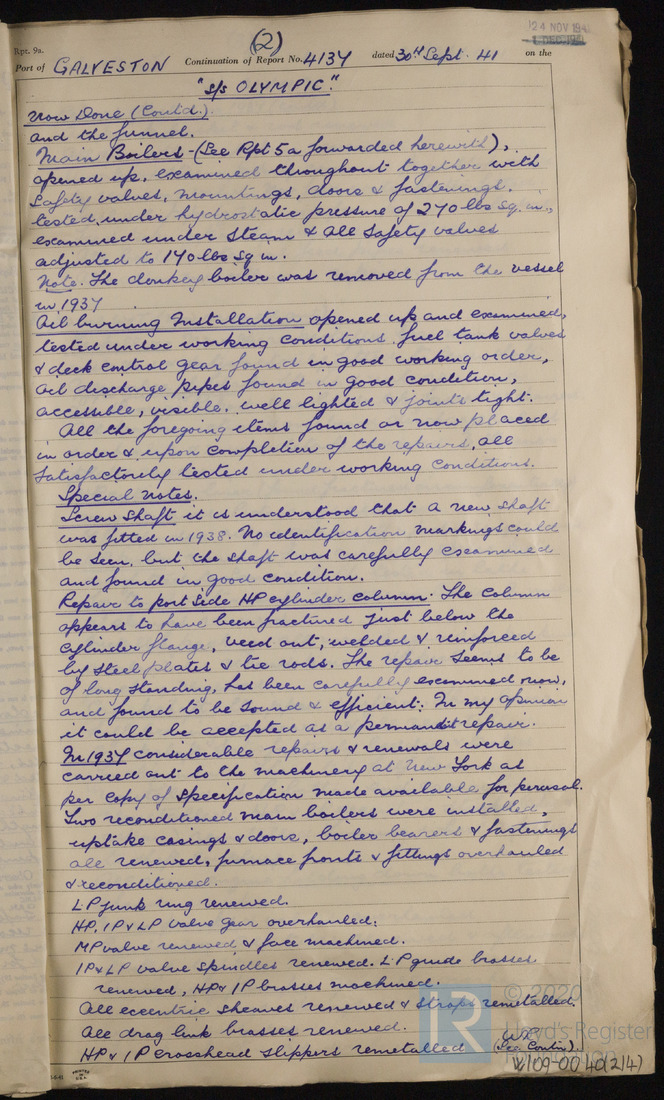 (2)
24 NOV 1941
1 DEC 1941
Rpt. 9a.
Port of GALVESTON Continuation of Report No. 4137 dated 30th Sept. 41 on the
"S/S OLYMPIC."
Now Done (Contd.).
and the funnel.
Main Boilers - (See Rpt 5a forwarded herewith),
opened up, examined throughout together with
safety valves, mountings, doors & fastenings.
tested under hydrostatic pressure of 270 lbs sq. in.,
examined under steam & all safety valves
adjusted to 170 lbs sq in.
Note. The donkey boiler was removed from the vessel
in 1937
Oil burning Installation opened up and examined,
tested under working conditions, fuel tank valves
& deck control gear found in good working order,
oil discharge pipes found in good condition,
accessible, visible, well lighted & joints tight.
All the foregoing items found or now placed
in order & upon completion of the repairs, all
satisfactorily tested under working conditions.
Special notes.
Screw Shaft it is understood that a new shaft
was fitted in 1938. No identification markings could
be seen, but the shaft was carefully examined
and found in good condition.
Repair to port side HP cylinder column. The column
appears to have been fractured just below the
cylinder flange, veed out, welded & reinforced
by steel plates & tie rods. The repair seems to be
of long standing, has been carefully examined now,
and found to be sound & efficient. In my opinion
it could be accepted as a permanent repair.
In 1937 considerable repairs & renewals were
carried out to the machinery at New York as
per copy of specification made available for perusal.
Two reconditioned main boilers were installed,
uptake casings & doors, boiler bearers & fastenings
all renewed, furnace fronts & fittings overhauled
& reconditioned.
LP junk ring renewed.
HP, IP & LP valve gear overhauled.
MP valve renewed & face machined.
IP & LP valve spindles renewed. LP guide brasses
renewed, HP & IP brasses machined.
All eccentric sheaves renewed & straps remetalled.
All drag link brasses renewed.
HP & IP crosshead slippers remetalled (See Contn).
© 2020
LR
Lloyd's Register
Foundation
W109-0040(2/4)
PRINTED IN U.S.A.